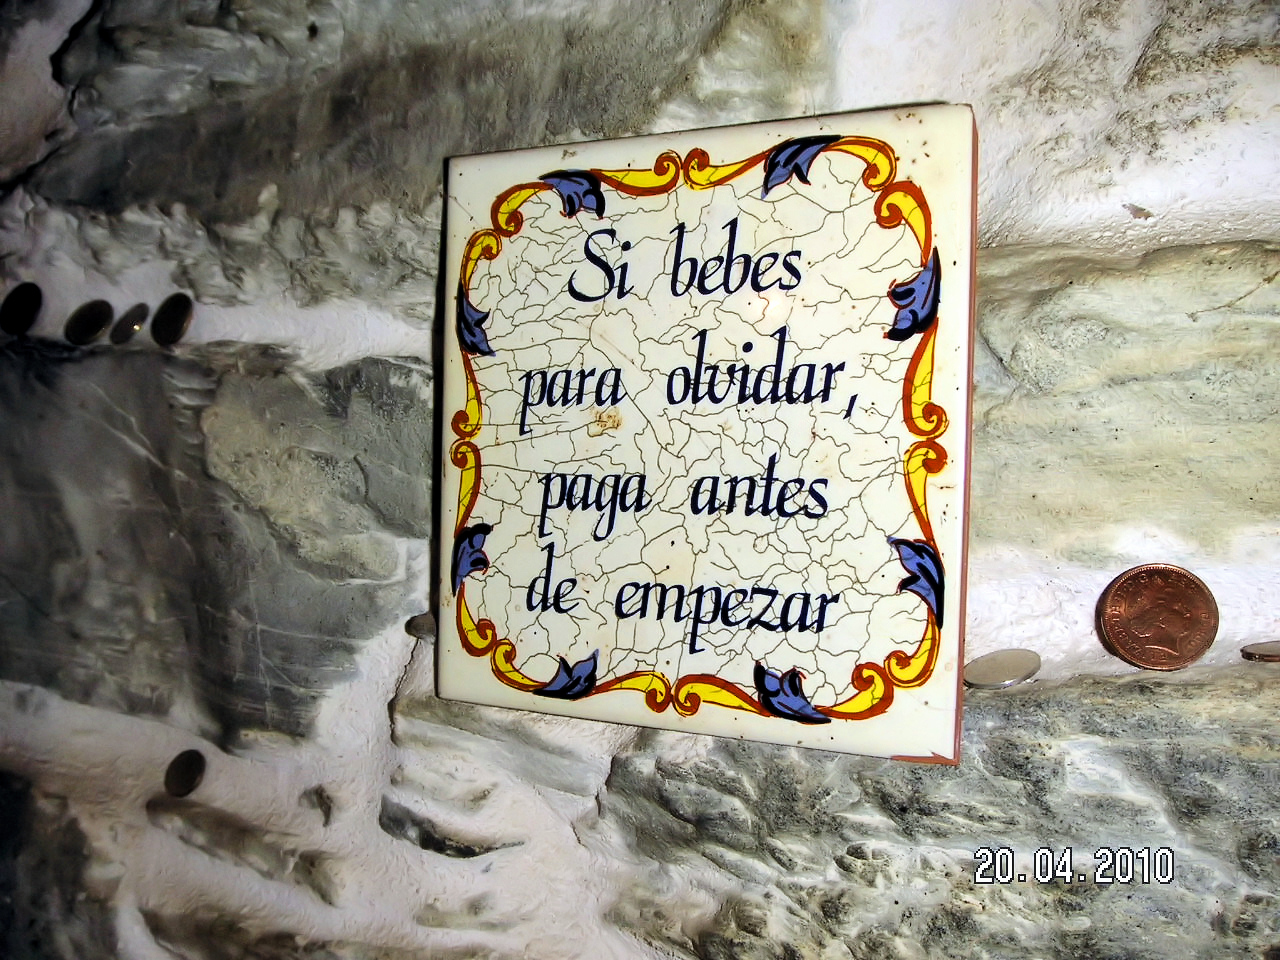 Si bebes
para olvidar,
paga antes
de empezar
20.04.2010